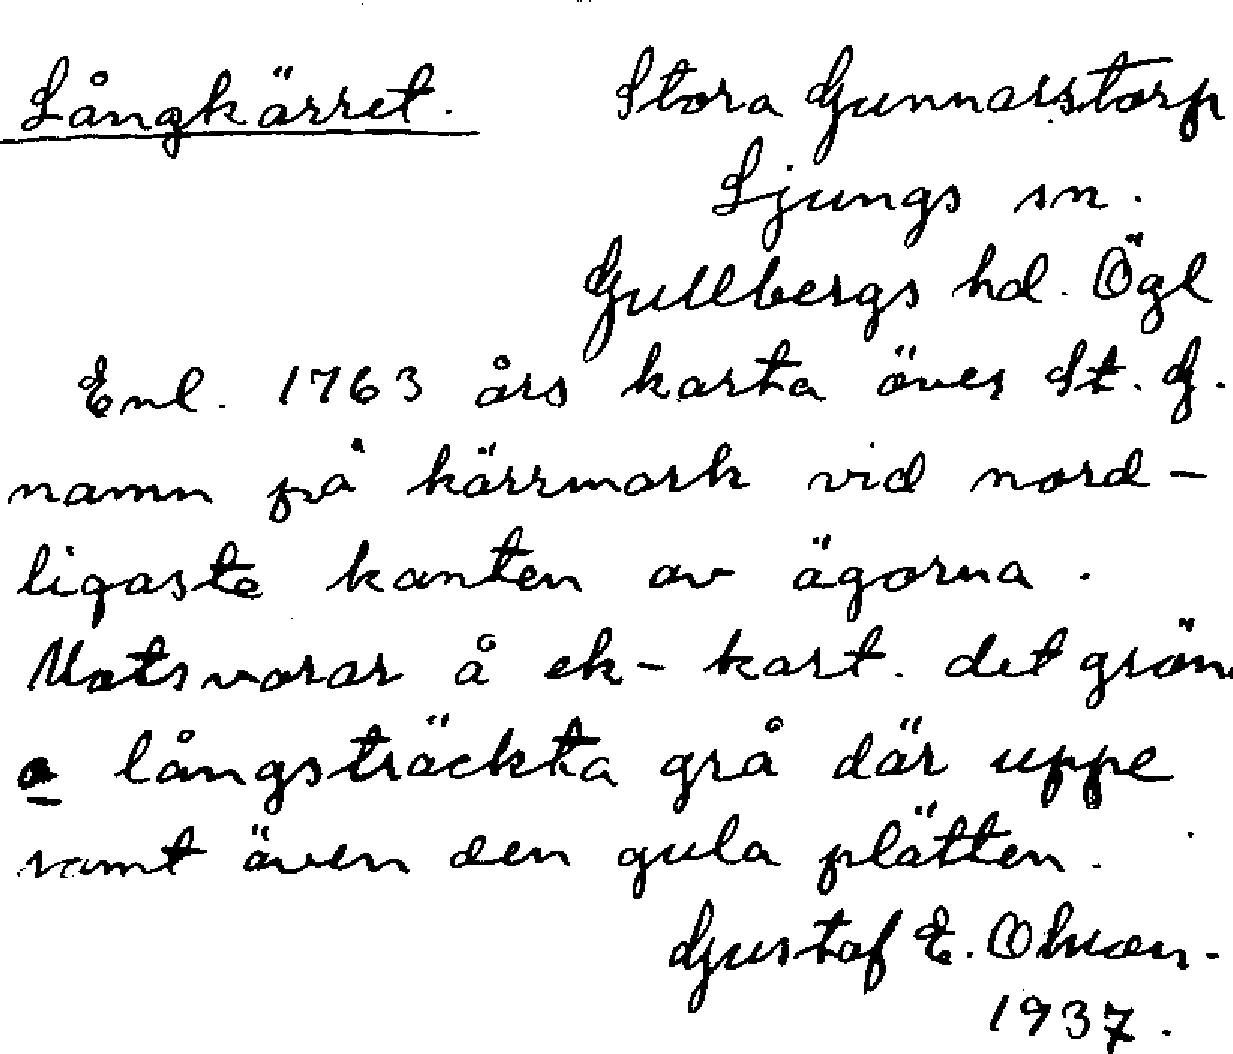 Långkärret. Stora Gunnarstorp
Ljungs sn.
Gullbergs hd. Ögl
Enl. 1763 års karta över St. G.
namn på kärrmark vid nord-
ligaste kanten av ägorna.
Motsvarar å ek-kart. det grön
a långsträckta grå där uppe
samt även den gula plätten.
Gustaf E. Olsson.
1937.